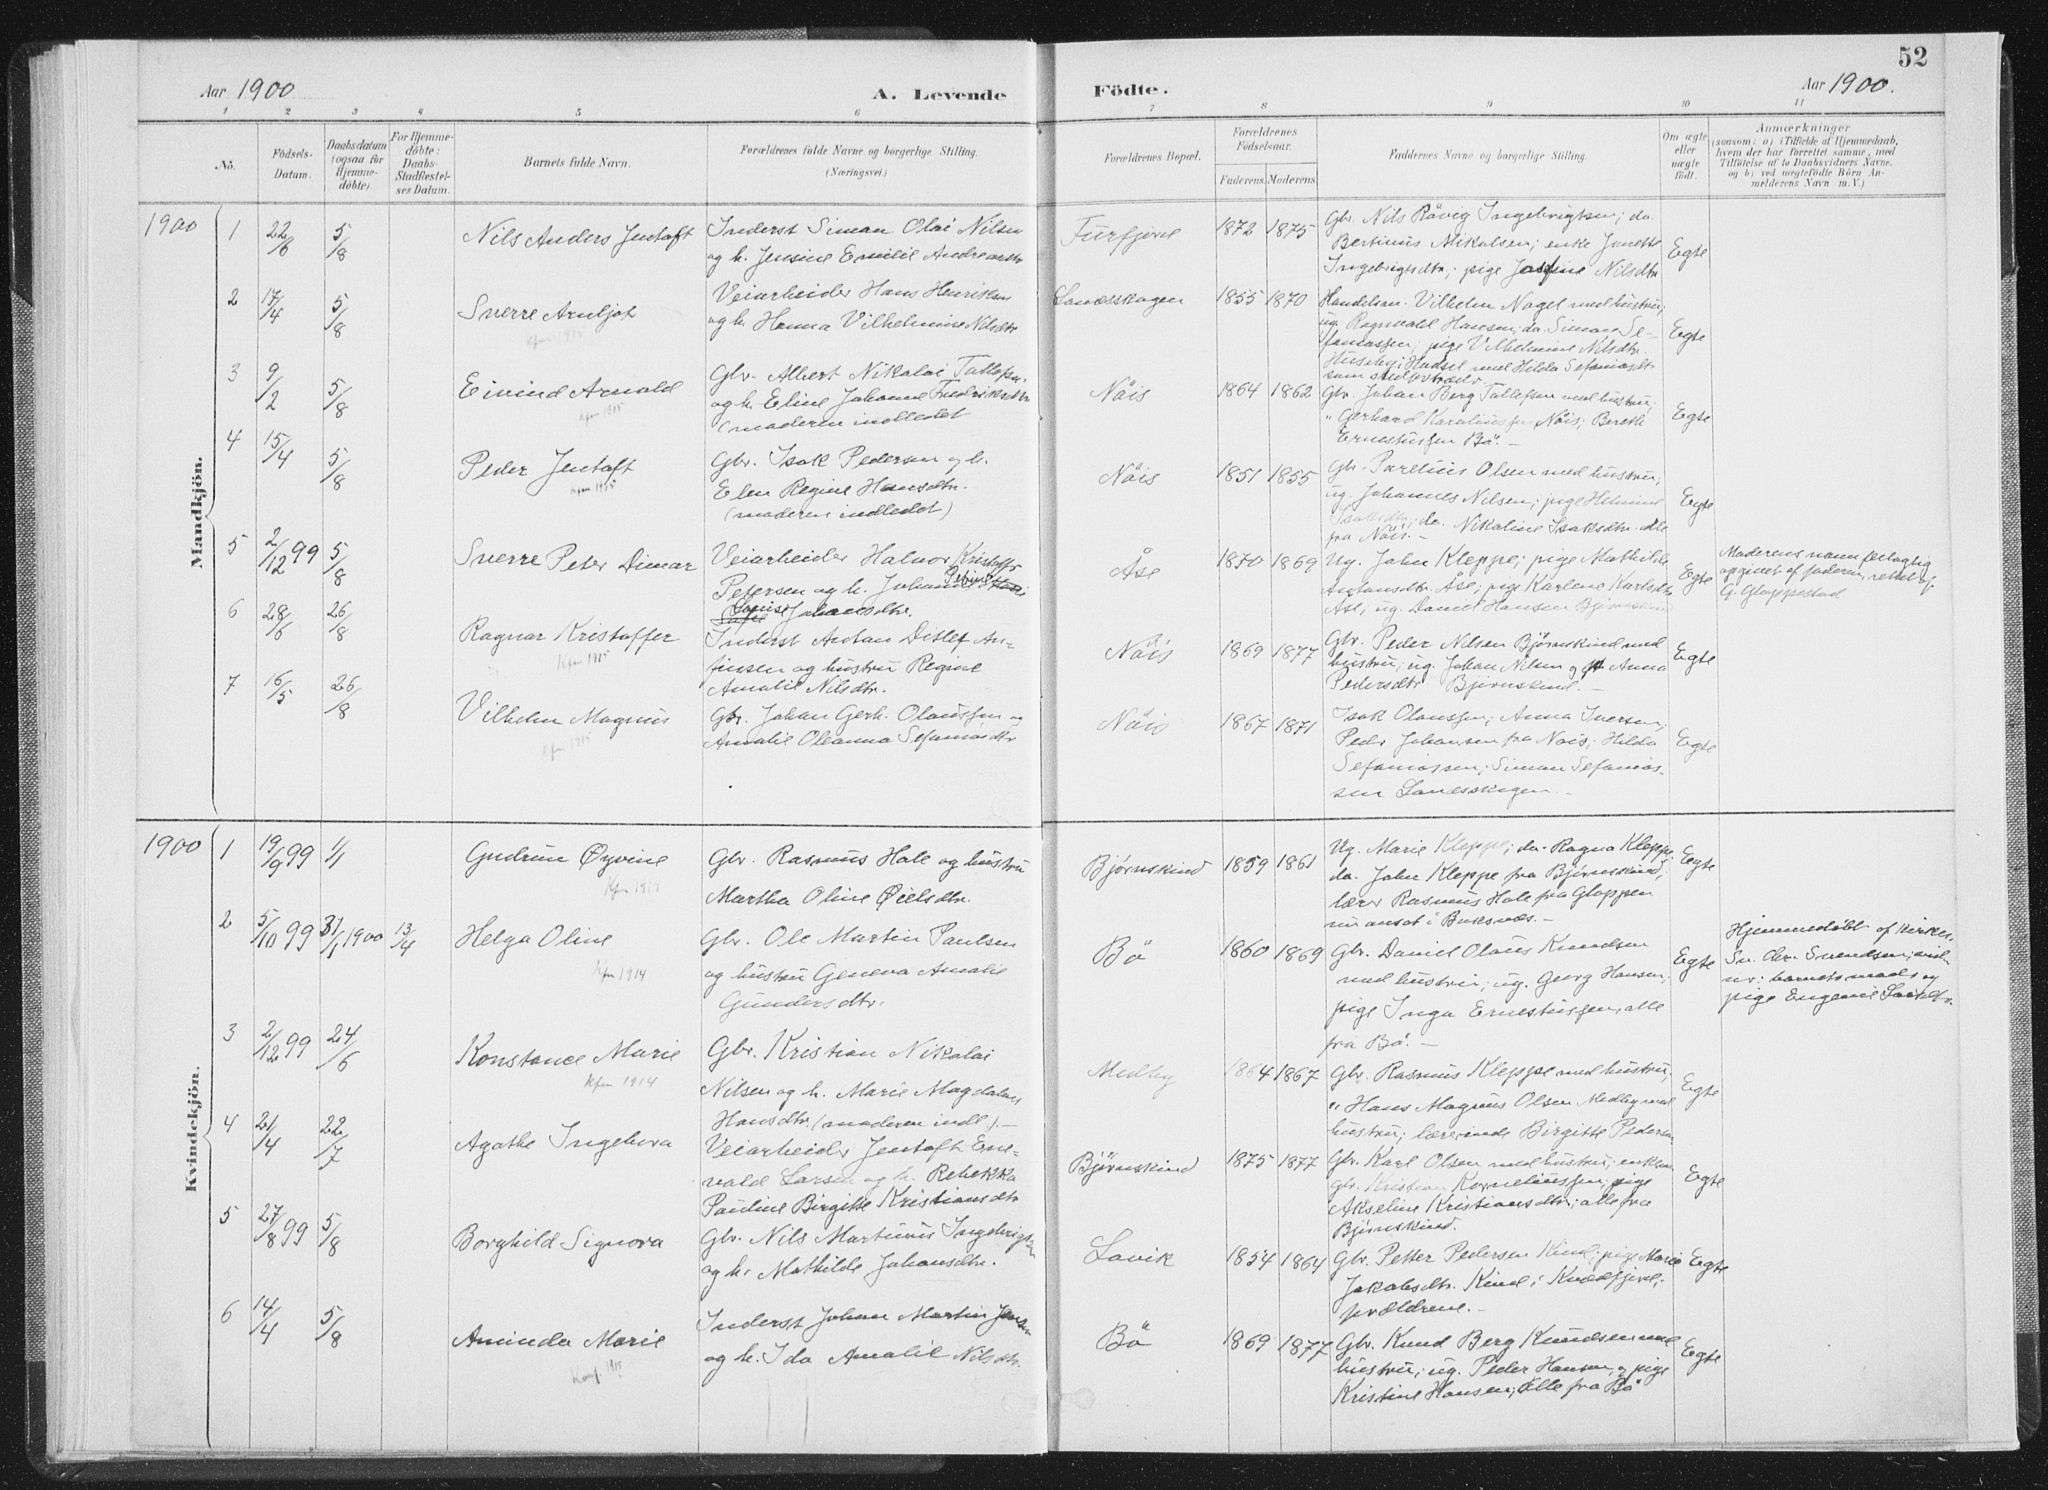 52
Aar 1900
A. Levende
Födte.
Aar 1900.
1 2 3 4 5 6 7 8 9 10 11
No.
Födsels-
Datum.
Daabsdatum
(ogsaa for
Hjemme-
döbte).
For Hjemme-
döbte:
Daabs-
Stadfæstel-
ses Datum.
Barnets fulde Navn.
Forældrenes fulde Navne og borgerlige Stilling.
(Næringsvei.)
Forældrenes Bopæl.
Forældrenes
Födselsaar.
Faderens. Moderens.
Faddernes Navne og borgerlige Stilling.
Om ægte
eller
uægte
födt.
Anmærkninger
(saasom: a) i Tilfælde af Hjemmedaab,
hvem der har forrettet samme, med
Tilföielse af to Daabsvidners Navne,
og b) ved uægtefödte Börn An-
melderens Navn m. V.)
Mandkjön.
1900
1 22/6 5/8
Nils Anders Jentoft
Inderst Simon Olai Nilsen
og h. Jensine Emilie Andreasdtr
Furfjord
1872 1875
Gbr. Nils Røvig Ingebrigtsen; do.
Bertinus Mikalsen; enke Janette
Ingebrigtsdtr; pige Josefine Nilsdtr
Egte
2 17/4 5/8
Sverre Arnljot
Kfm 1915
Veiarbeider Hans Henriksen
og h. Hanna Vilhelmine Nilsdtr
Sandsskogen
1855 1870
Handelsm. Vilhelm Nagel med hustru;
ug. Ragnvald Hansen; do. Simon Se-
famassen; pige Vilhelmine Nilsdtr.
Huseby i Hadsel med Hilda Sefaniasdtr
Egte
3 9/2 5/8
Eivind Arnold
Kfm 1915
Gbr. Albert Nikolai Tollefsen
og h. Eline Johanne Fredriksdtr
(moderen indledet
Nöis
1864 1862
Gbr. Johan Berg Tollefsen med hustru;
" Gerhard Karoliussen Nöis; Berethe
Ernestussen Bö. -
Egte
4 15/4 5/8
Peder Jentoft
Kfm 1915
Gbr. Isak Pedersen og h.
Elen Regine Hansdtr.
(moderen indledet)
Nöis
1851 1855
Gbr. Parelius Olsen med hustru;
ug. Johannes Nilsen; pige Helmine
Isaksdtr; do. Nikoline Isaksdtr. alle
fra Nöis. -
Egte
5 2/12 99 5/8
Sverre Peter Dimar
Veiarbeider Halvor Kristoffer
Petersen og h. Johan Petrine
Louise Johansdtr.
Åse
1870 1869
Ug. John Kleppe; pige Mathilde
Antonsdtr. Åse; pige Karlene Karlsdtr
Åse; ug. Daniel Hansen Bjørnskind
Egte
Moderens navn feilagtig
opgivet af faderen, rettet af
G. Gloppestad
6 28/6 26/8
Ragnar Kristoffer
Kfm 1915
Inderst Anton Ditlef An-
finsen og hustru Regine
Amalie Nilsdtr.
Nöis
1869 1877
Gbr. Peder Nilsen Björnskind med
hustru; ug. Johan Nilsen og Anna
Pedersdtr Björnskind. -
Egte
7 16/5 26/8
Vilhelm Magnus
Kfm 1915
Gbr. Johan Gerh. Olaussen og
Amalie Oleanna Sefaniasdtr
Nöis
1867 1871
Isak Olaussen; Anna Iversen,
Peder Johansen fra Nöis; Hilda
Sefaniassen; Simon Sefanias-
sen Sandsskogen. -
Egte
Kvindekjön.
1900
1 19/9 99 1/1
Gudrun Øyvine
Kfm 1914
Gbr. Rasmus Hole og hustru
Martha Oline Øielsdtr.
Bjørnskind
1859 1861
Ug. Marie Kleppe; do. Ragna Kleppe;
do. John Kleppe fra Bjørnskind;
lærer Rasmus Hole fra Gloppen
nu ansat i Buksnæs. -
Egte
2 5/10 99 31/1 1900 13/4
Helga Oline
Kfm 1914
Gbr. Ole Martin Paulsen
og hustru Geneva Amalie
Gundersdtr.
Bö
1860 1869
Gbr. Daniel Olaus Knudsen
med hustru; ug. Georg Hansen;
pige Inga Ernestussen, alle
fra Bö. -
Egte
Hjemmedöbt af kirkes.
Sv. Chr. Svendsen; vid-
ner: barnets moder og
pige Eugenie
3 2/12 99 24/6
Konstance Marie
Kfm 1914
Gbr. Kristian Nikolai
Nilsen og h. Marie Magdalene
Hansdtr. (moderen indl.). -
Medby
1864 1867
Gbr. Rasmus Kleppe med hustru;
" Hans Magnus Olsen Medby med
hustru; lærerinde Birgitte Pedersen
Egte
4 21/4 22/7
Agathe Ingebora
Veiarbeider Jentoft Ene-
vald Larsen og h. Rebekka
Pauline Birgitte Kristiansdtr
Bjørnskind
1875 1877
Gbr. Karl Olsen med hustru; enkem.
gbr. Kristian Korneliussen; pige
Akseline Kristiansdtr; alle fra
Bjørnskind.
Egte
5 27/8 99 5/8
Borghild Signora
Gbr. Nils Martinus Ingebrigtsen
og h. Mathilde Johansdtr.
Lovik
1854 1864
Gbr. Petter Pedersen Kind; pige Marie
Jakobsdtr. Kind i Kvædfjord;
forældrene. -
Egte
6 14/4 5/8
Aminda Marie
Konf. 1915
Inderst Johan Martin Jensen
og h. Ida Amalie Nilsdtr.
Bö
1869 1877
Gbr. Knud Berg Knudsen med
hustru; ug. Peder Hansen og pige
Kristine Hansen; alle fra Bö
Egte